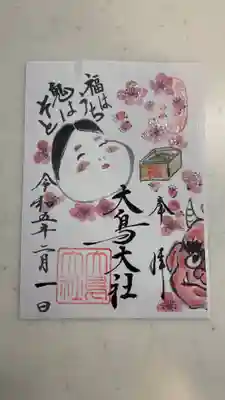 奉拝
大鳥大社
福はうち
鬼はそと
令和五年二月一日